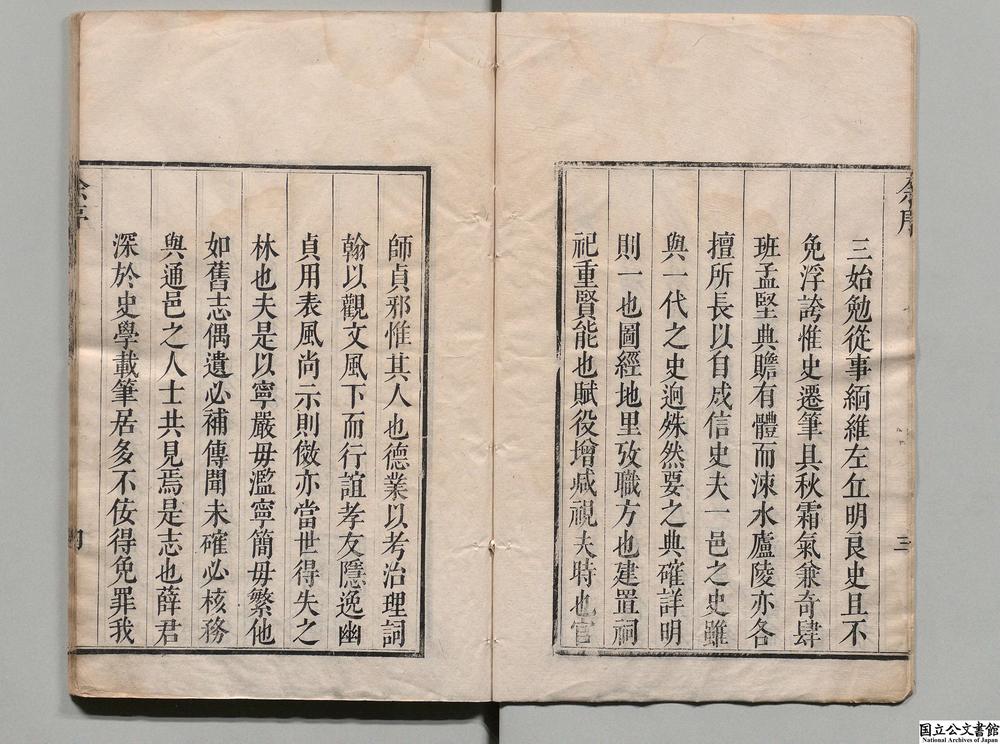 三始勉從事緬維左丘明良史且不
免浮誇惟史遷筆具秋霜氣兼奇肆
班孟堅典贍有體而涑水廬陵亦各
擅所長以自成信史夫一邑之史雖
與一代之史逈殊然要之典確詳明
則一也圖經地里攷職方也建置祠
祀重賢能也賦役增減視夫時也官
師貞邪惟其人也德業以考治理詞
翰以觀文風下而行誼孝友隱逸幽
貞用表風尚示則傚亦當世得失之
林也夫是以寧嚴毋濫寧簡毋繁他
如舊志偶遺必補傳聞未確必核務
與通邑之人士共見焉是志也薛君
深於史學載筆居多不佞得免罪我
余序
三
国立公文書館
National Archives of Japan